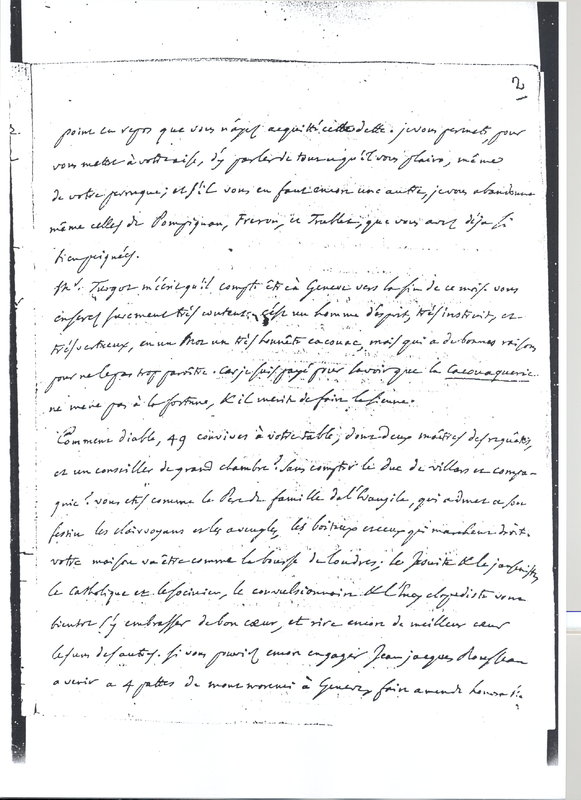 2
point en repos que vous n'ayez acquitté cette dette. je vous permets, pour
vous mettre à votre aise, d'y parler de tout ce qu'il vous plaira, même
de votre perruque; et s'il vous en faut encore une autre, je vous abandonne
même celles de Pompignan, Freron, et Trublet, que vous avez déja si
bien peignées.
Mr. Turgot m'écrit qu'il compte être à Geneve vers la fin de ce mois. vous
en serez surement très content. c'est un homme d'esprit, très instruit, et
très vertueux, en un mot un très honnête cacouac, mais qui a de bonnes raisons
pour ne le pas trop paroître. car je suis payé pour savoir que la Cacouaquerie
ne mene pas à la fortune, & il merite de faire la sienne.
Comment diable, 49 convives à votre table, dont deux maîtres des requêtes,
et un conseiller de grand chambre! sans compter le duc de villars et compa-
gnie! vous etes comme le Pere de famille de l'Evangile, qui admet à son
festin les clairvoyans et les aveugles, les boiteux et ceux qui marchent droit.
votre maison va être comme la bourse de Londres; le Jesuite & le janseniste,
le catholique et le socinien, le convulsionnaire & l'Encyclopediste vont
bientot s'y embrasser de bon cœur, et rire encore de meilleur cœur
les uns des autres. si vous pouviez encor engager Jean jacques Rousseau
a venir a 4 pattes de montmorenci à Geneve, faire amende honorable